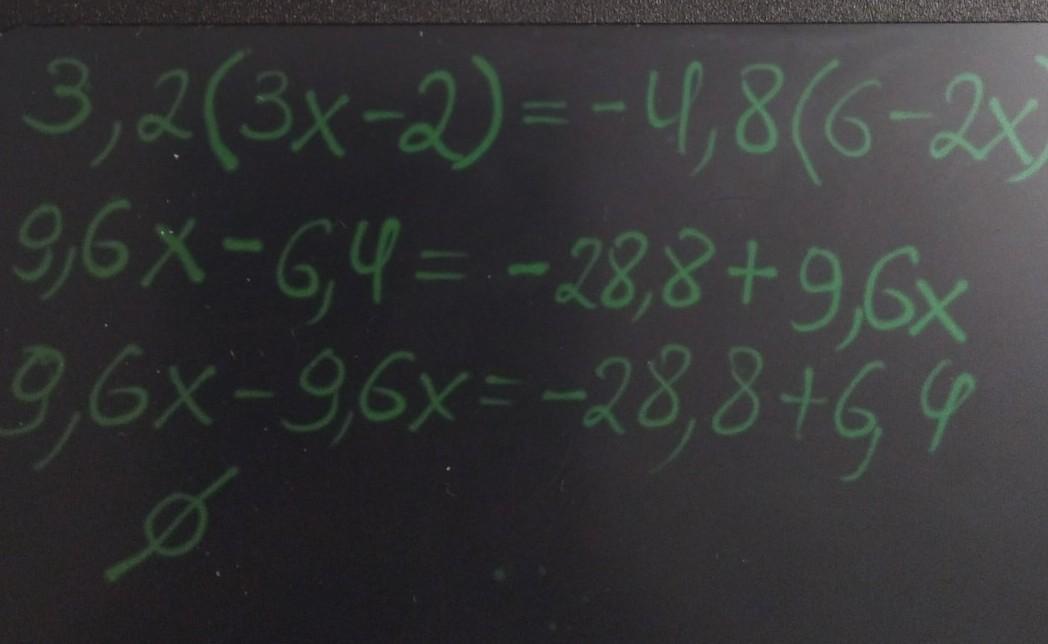 3,2(3x-2)=-4,8(6-2x)
9,6x-6,4=-28,8+9,6x
9,6x-9,6x=-28,8+6,4
∅